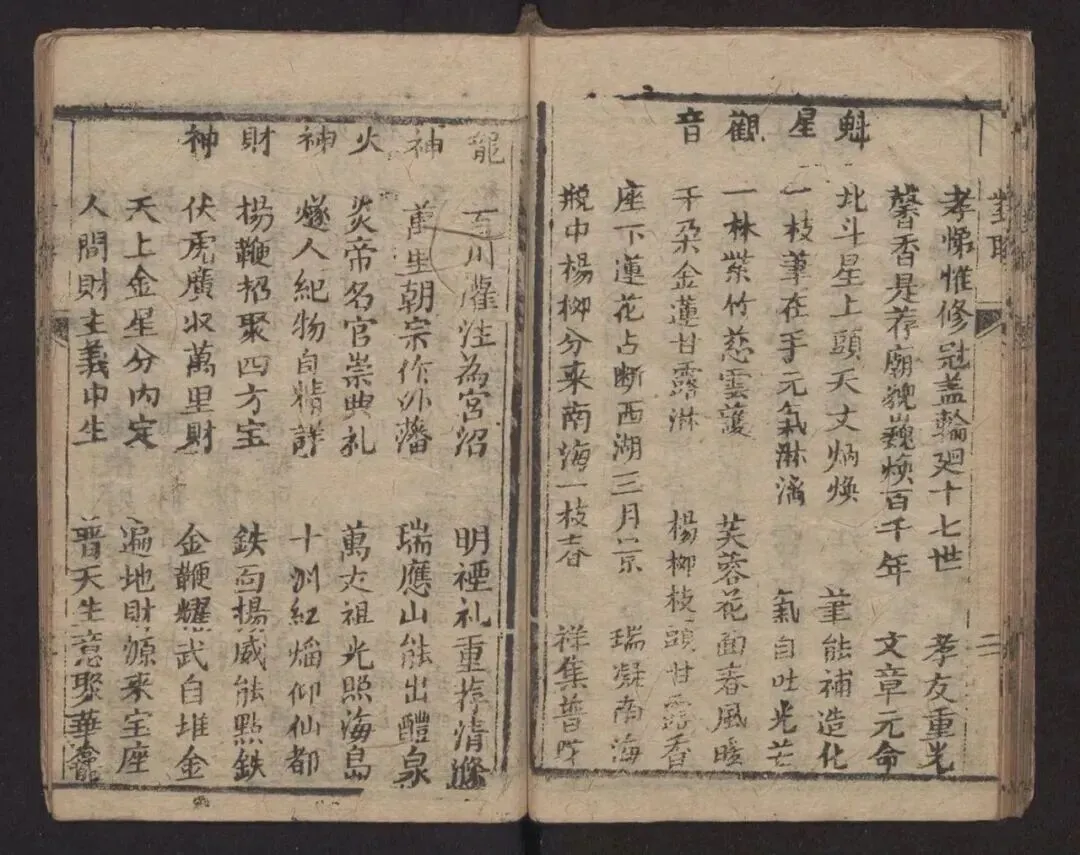 對聯
二
孝悌惟修冠盖輪廻十七世 孝友重光
馨香是荐廟貌巍煥百千年 文章元命
魁星 北斗星上頭天文炳煥 筆能補造化
一枝筆在手元氣淋漓 氣自吐光芒
觀音 一林紫竹慈雲護 芙蓉花面春風暖
千朶金蓮甘露淋 楊柳枝頭甘露香
座下蓮花占断西湖三月景 瑞凝南海
瓶中楊柳分来南海一枝春 祥集普
龍神 百川灌注為宮沼 明禋礼重荐清滌
萬里朝宗作外藩 瑞應山能出醴泉
火神 炎帝名官崇典礼 萬丈祖光照海島
燧人紀物自精詳 十洲紅焰仰仙都
財神 揚鞭招聚四方宝 鉄面揚威能點鉄
伏虎廣収萬里財 金鞭耀武自堆金
天上金星分内定 遍地財源来宝座
人間財主義中生 普天生意聚華龕